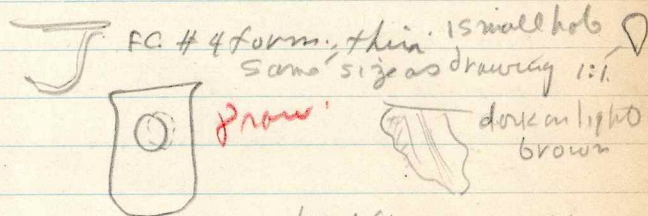 FC. # 4 form; thin. 1 small hole
Same size as drawing 1:1.
Draw.
dark on light
brown